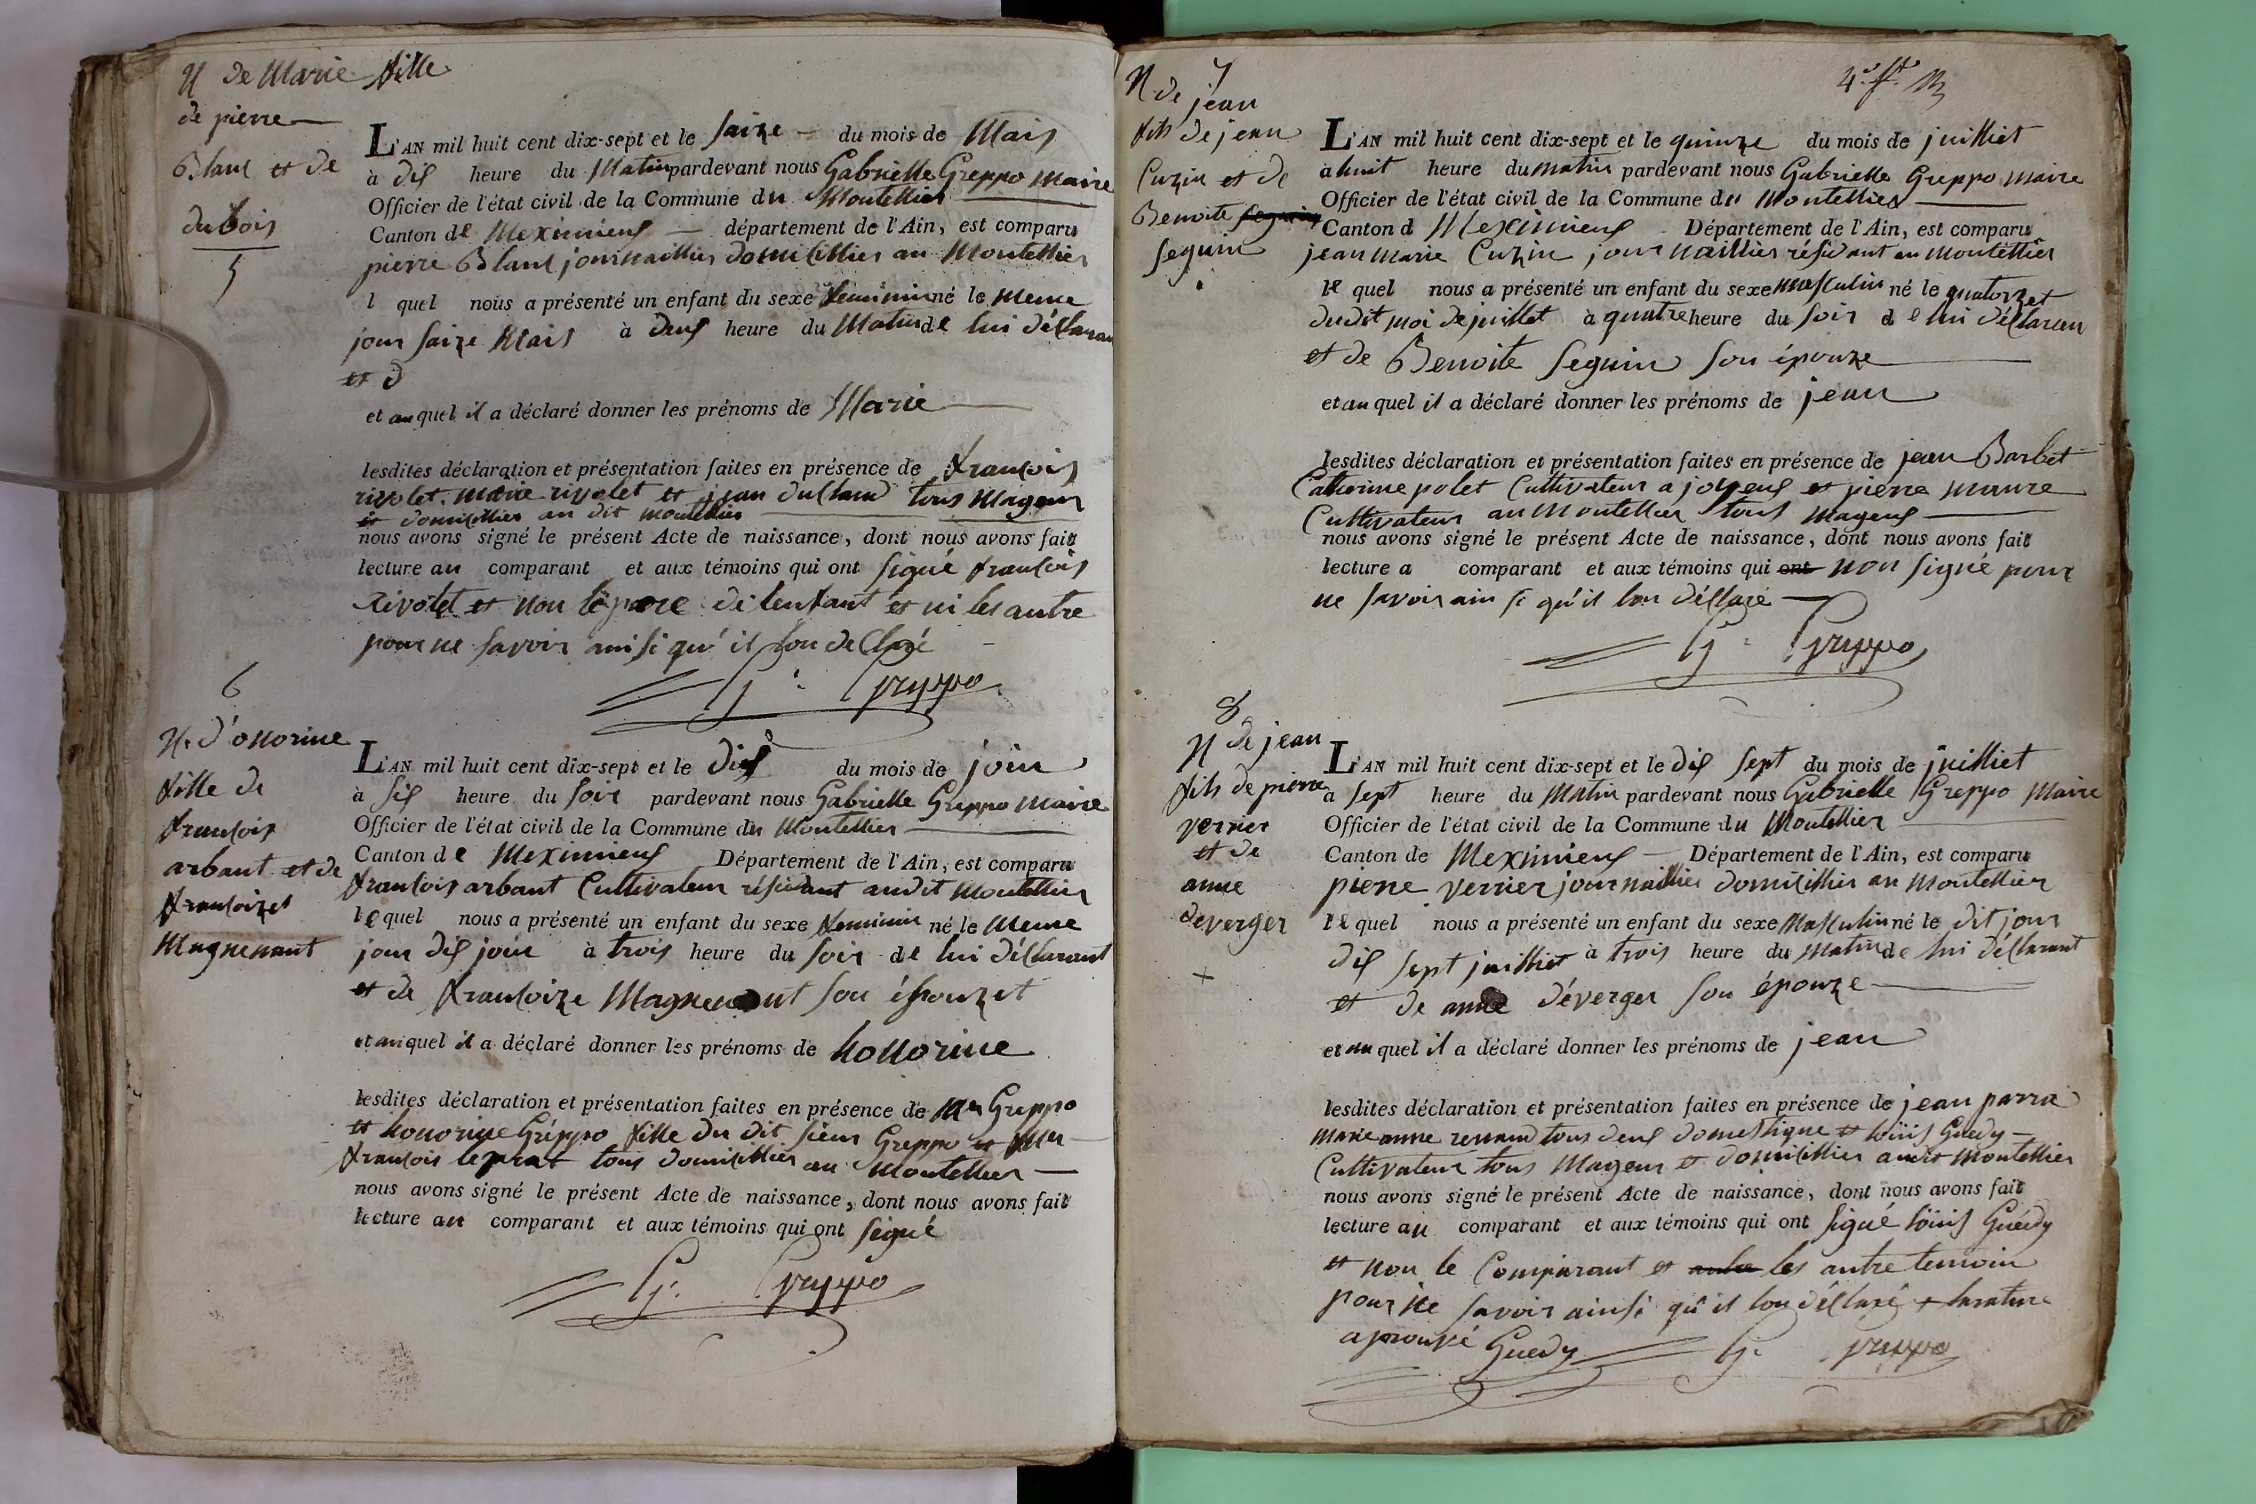 N de Marie fille
de pierre
Blanc et de
dubois
5
L'AN mil huit cent dix-sept et le saize du mois de Mais
à dis heure du Matin pardevant nous Gabrielle Greppo maire
Officier de l'état civil de la Commune du Montellier
Canton de Meximieus département de l'Ain, est comparu
pierre Blanc journaillier domicillier au Montellier
l quel nous a présenté un enfant du sexe feminin né le meme
jour saize Mais à deus heure du Matin de lui déclaran
et d
et auquel il a déclaré donner les prénoms de Marie
lesdites déclaration et présentation faites en présence de francois
rivolet. marie rivolet et jean duclaud tous mageur
et domicillier au dit montellier
nous avons signé le présent Acte de naissance, dont nous avons fait
lecture au comparant et aux témoins qui ont signé francois
rivolet et non le pere de lenfant et ni les autre
pour ne savoir ainsi qu'il lon declaré
G. Greppo
6
N. d'onorine
fille de
francois
arbant et de
francoizet
Magnenant
L'AN mil huit cent dix-sept et le dis du mois de join
à sis heure du soir pardevant nous Gabrielle Greppo maire
Officier de l'état civil de la Commune du Montellier
Canton de Meximieus Département de l'Ain, est comparu
francois arbant Cultivateur résidant audit Montellier
lequel nous a présenté un enfant du sexe feminin né le meme
jour dis join à trois heure du soir de lui déclarant
et de francoize Magnenant son épouzet
et auquel il a déclaré donner les prénoms de honorine
lesdites déclaration et présentation faites en présence de Greppo
et honorine Gréppo fille du dit sieur Greppo et
francois leprat tous domicillier au Montellier
nous avons signé le présent Acte de naissance, dont nous avons fait
lecture au comparant et aux témoins qui ont signé
G. Greppo
4e. ft.
7
N. de jean
fils de jean
Cuzin et de
Benoite seguin
seguin
L'AN mil huit cent dix-sept et le quinze du mois de juilliet
à huit heure du matin pardevant nous Gabrielle Greppo maire
Officier de l'état civil de la Commune du Montellier
Canton d Meximieus Département de l'Ain, est comparu
jean marie Cuzin journaillier résidant au montellier
le quel nous a présenté un enfant du sexe masculin né le quatorzet
dudit moi de juillet à quatre heure du soir de lui déclaran
et de Benoite seguin son épouze
et au quel il a déclaré donner les prénoms de jean
lesdites déclaration et présentation faites en présence de jean Barbet
Catherine polet Cultivateur a joyeus et pierre maure
Cultivateur au Montellier tous mageus
nous avons signé le présent Acte de naissance, dont nous avons fait
lecture a comparant et aux témoins qui ont non signé pour
ne savoir ainsi qu'il lon déclaré
G. Greppo
8
N de jean
fils de pierre
verrier
et de
anne
deverger
L'AN mil huit cent dix-sept et le dis sept du mois de juilliet
a sept heure du Matin pardevant nous Gabrielle Greppo Maire
Officier de l'état civil de la Commune du Montellier
Canton de Meximieus Département de l'Ain, est comparu
pierre verrier journaillier domicillier au Montellier
le quel nous a présenté un enfant du sexe Masculin né le dit jour
dis sept juilliet à trois heure du matin de lui déclarant
et de anne déverger son épouze
et au quel il a déclaré donner les prénoms de jean
lesdites déclaration et présentation faites en présence de jean parra
marie anne renaud tous deus domestique et loüis Guedy
Cultivateur tous Mageur et domicillier audit Montellier
nous avons signé le présent Acte de naissance, dont nous avons fait
lecture au comparant et aux témoins qui ont signé loüis Guédy
et non le Comparant et autre les autre temoin
pour ne savoir ainsi qu'il lon déclaré + larature
aprouvé Guedy G. Greppo